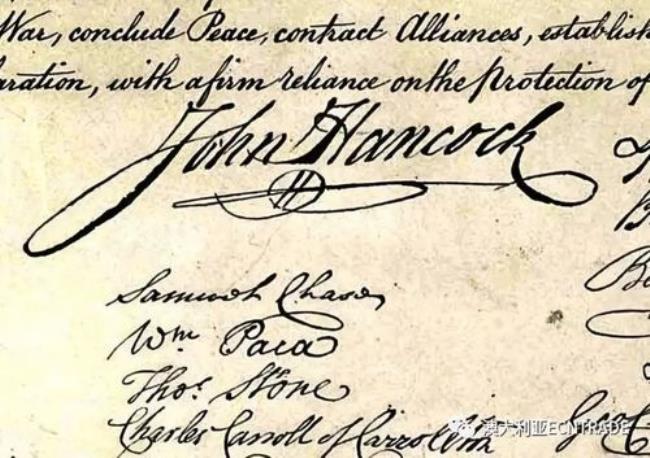 War, conclude Peace, contract Alliances, establish
aration, with a firm reliance on the Protection of
John Hancock
Samuel Chase
Wm Paca
Thos Stone
Charles Carroll of Carrollton
澳大利亚ECNTRADE